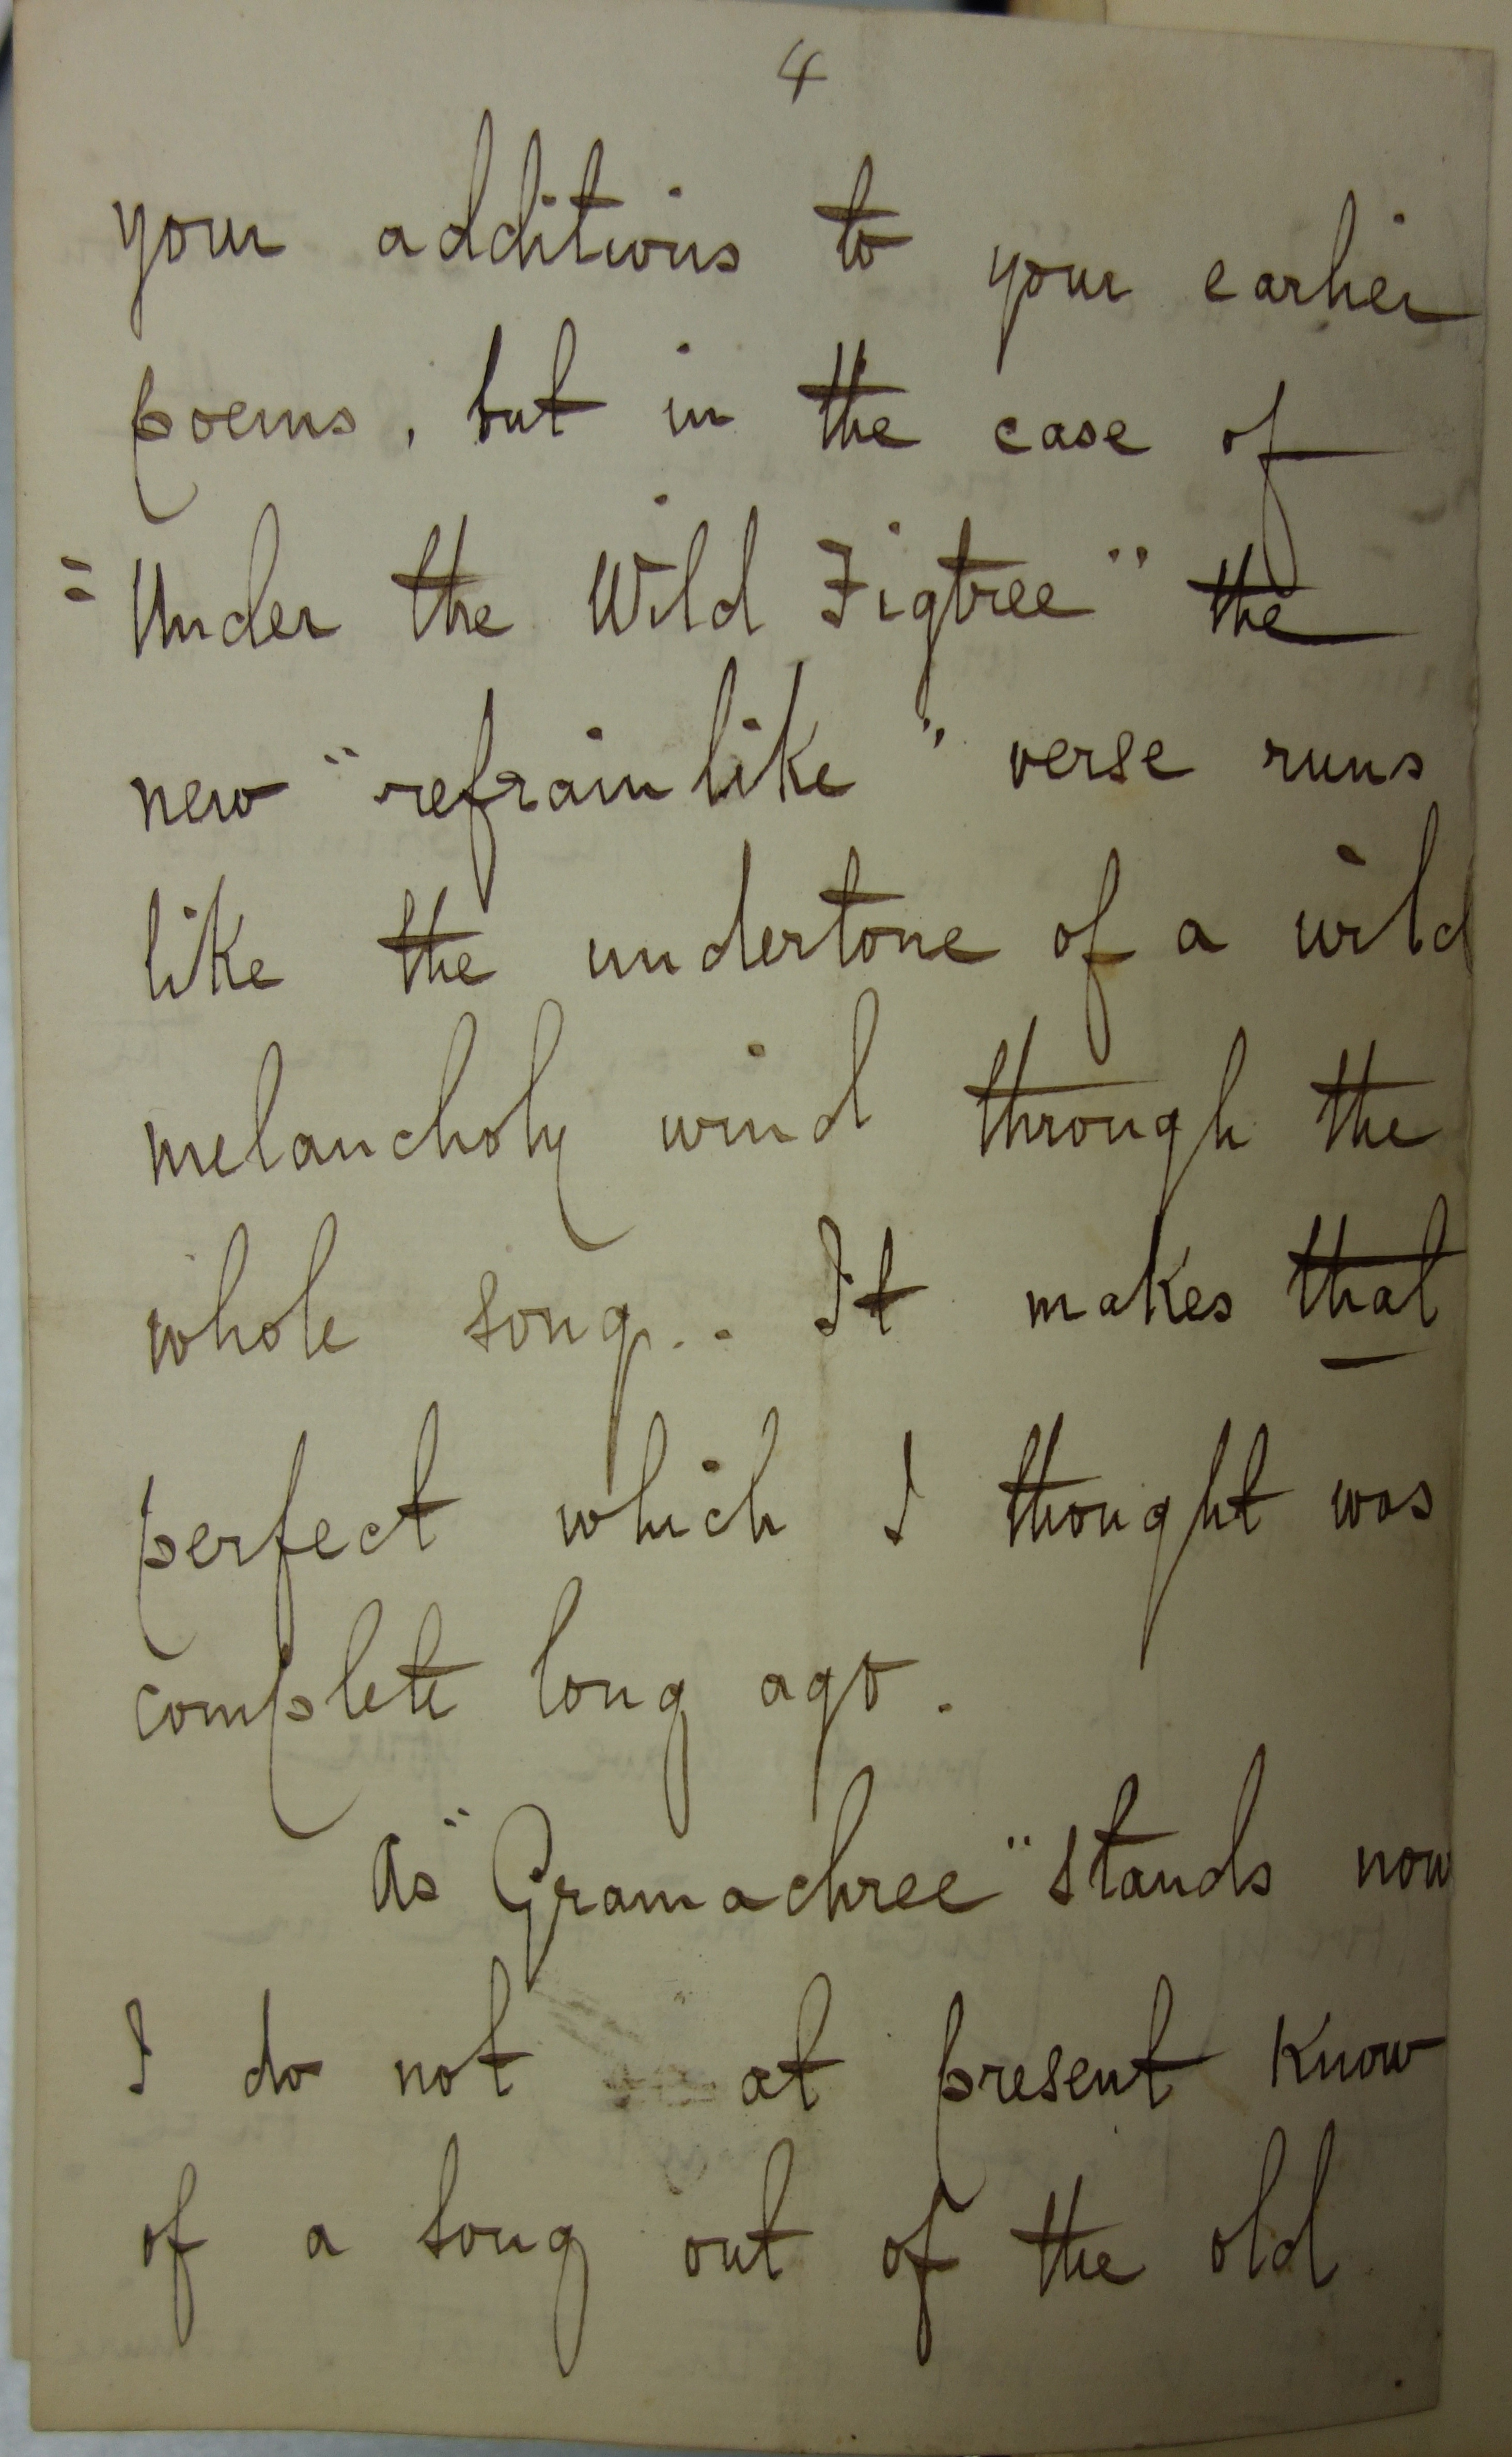 4
your additions to your earlier
poems, but in the case of
"Under the Wild Figtree" the
new "refrain like" verse runs
like the undertone of a wild
melancholy wind through the
whole song.. It makes that
perfect which I thought was
complete long ago.
As "Gramachree" stands now
I do not at present know
of a song out of the old